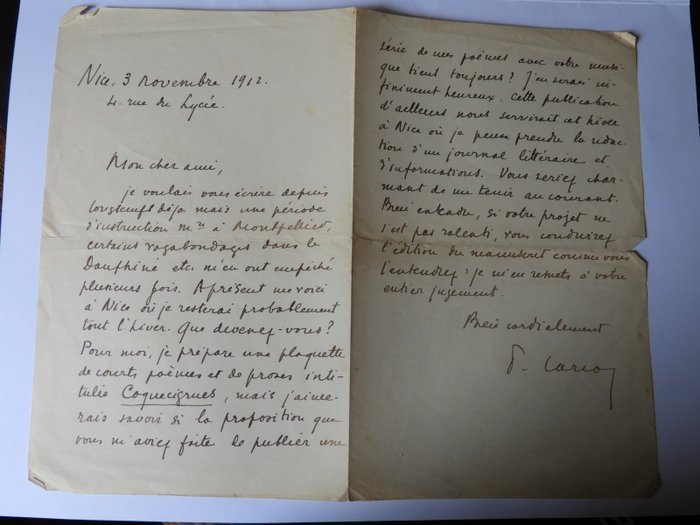 Nice, 3 novembre 1912.
4. rue du Lycée.
Mon cher ami,
je voulais vous écrire depuis
longtemps déjà mais une période
d'instruction mre à Montpellier,
certains vagabondages dans le
Dauphiné etc. m'en ont empêché
plusieurs fois. A présent me voici
à Nice où je resterai probablement
tout l'hiver. Que devenez-vous?
Pour moi, je prépare une plaquette
de courts poèmes et de proses inti-
tulée Coquecigrues, mais j'aime-
rais savoir si la proposition que
vous m'aviez faite de publier une
série de mes poèmes avec votre musi-
que tient toujours? J'en serais in-
finiment heureux. Cette publication
d'ailleurs nous servirait cet hiver
à Nice où je pense prendre la rédac-
tion d'un journal littéraire et
d'informations. Vous seriez char-
mant de me tenir au courant.
Bien entendu, si votre projet ne
s'est pas ralenti, vous conduirez
l'édition du manuscrit comme vous
l'entendrez; je m'en remets à votre
entier jugement.
Bien cordialement
F. Carco